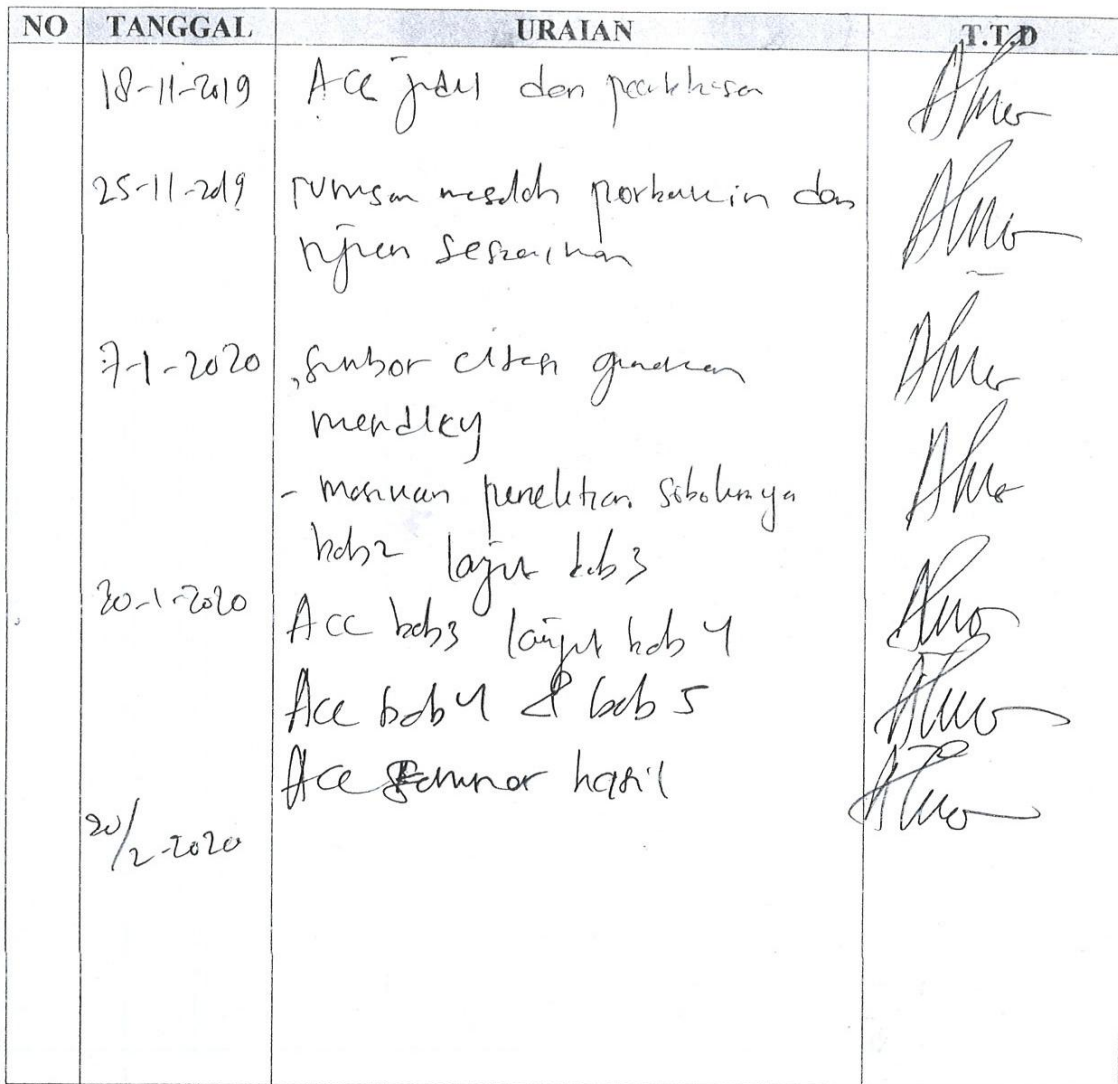 NO TANGGAL URAIAN T.T.D
18-11-2019 Acc judul dan
25-11-2019 rumusan masalah perbaikin dan
tujuan sesuaikan
7-1-2020 , sumber citasi gunakan
mendley
- masukan penelitian sebelumnya
bab2 lanjut bab3
20-1-2020
Acc bab3 lanjut bab 4
Acc bab 4 & bab 5
Acc seminar hasil
20/2-2020